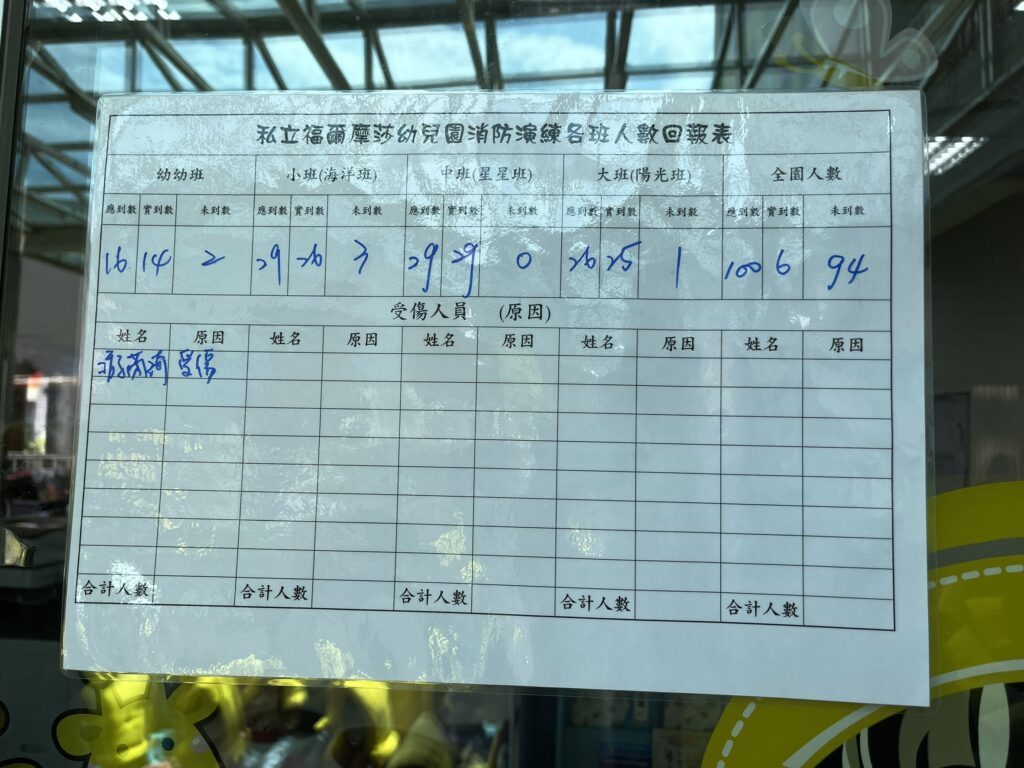 私立福爾摩莎幼兒園消防演練各班人數回報表
幼幼班 小班(海洋班) 中班(星星班) 大班(陽光班) 全園人數
應到數 實到數 未到數 應到數 實到數 未到數 應到數 實到數 未到數 應到數 實到數 未到數 應到數 實到數 未到數
16 14 2 29 26 3 29 29 0 26 25 1 100 6 94
受傷人員 (原因)
姓名 原因 姓名 原因 姓名 原因 姓名 原因 姓名 原因
受傷
合計人數 合計人數 合計人數 合計人數 合計人數